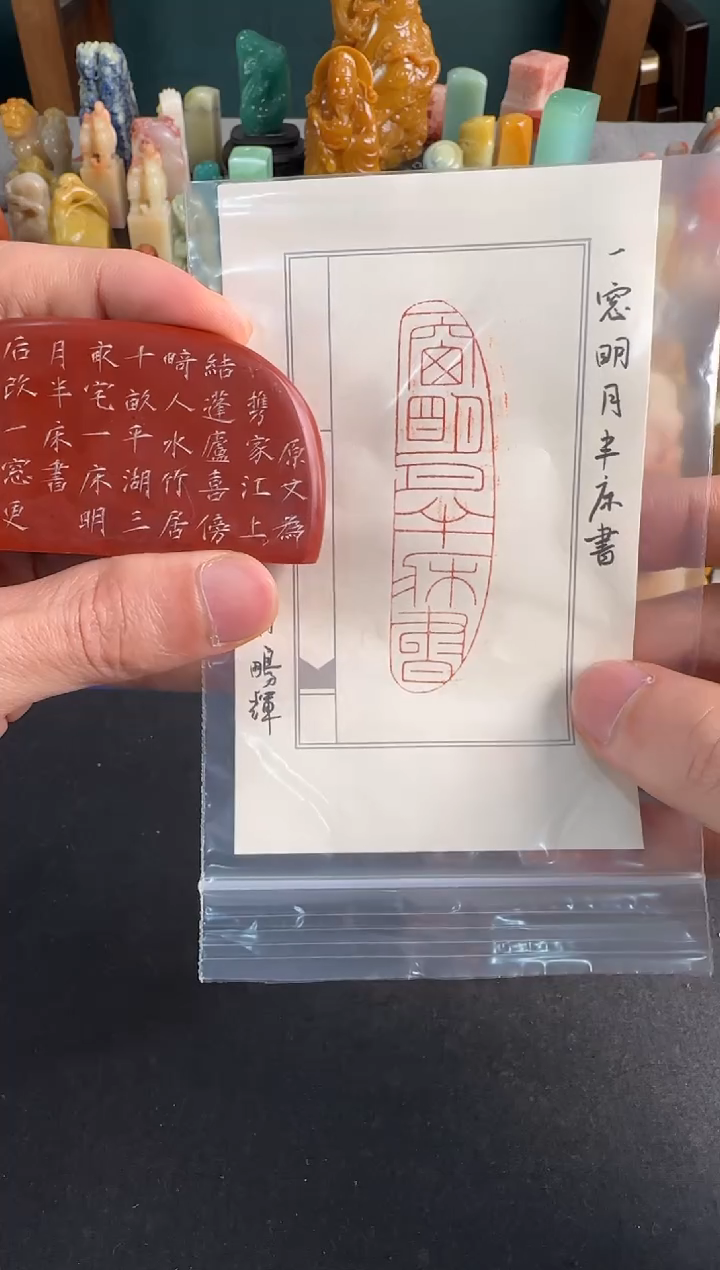 一窓明月半床書
一窗明月半床書
鵬輝
原文為
携家江上
結蓬廬喜傍
畸人水竹居
十畝平湖三
畝宅一床明
月半床書
后改一窓更